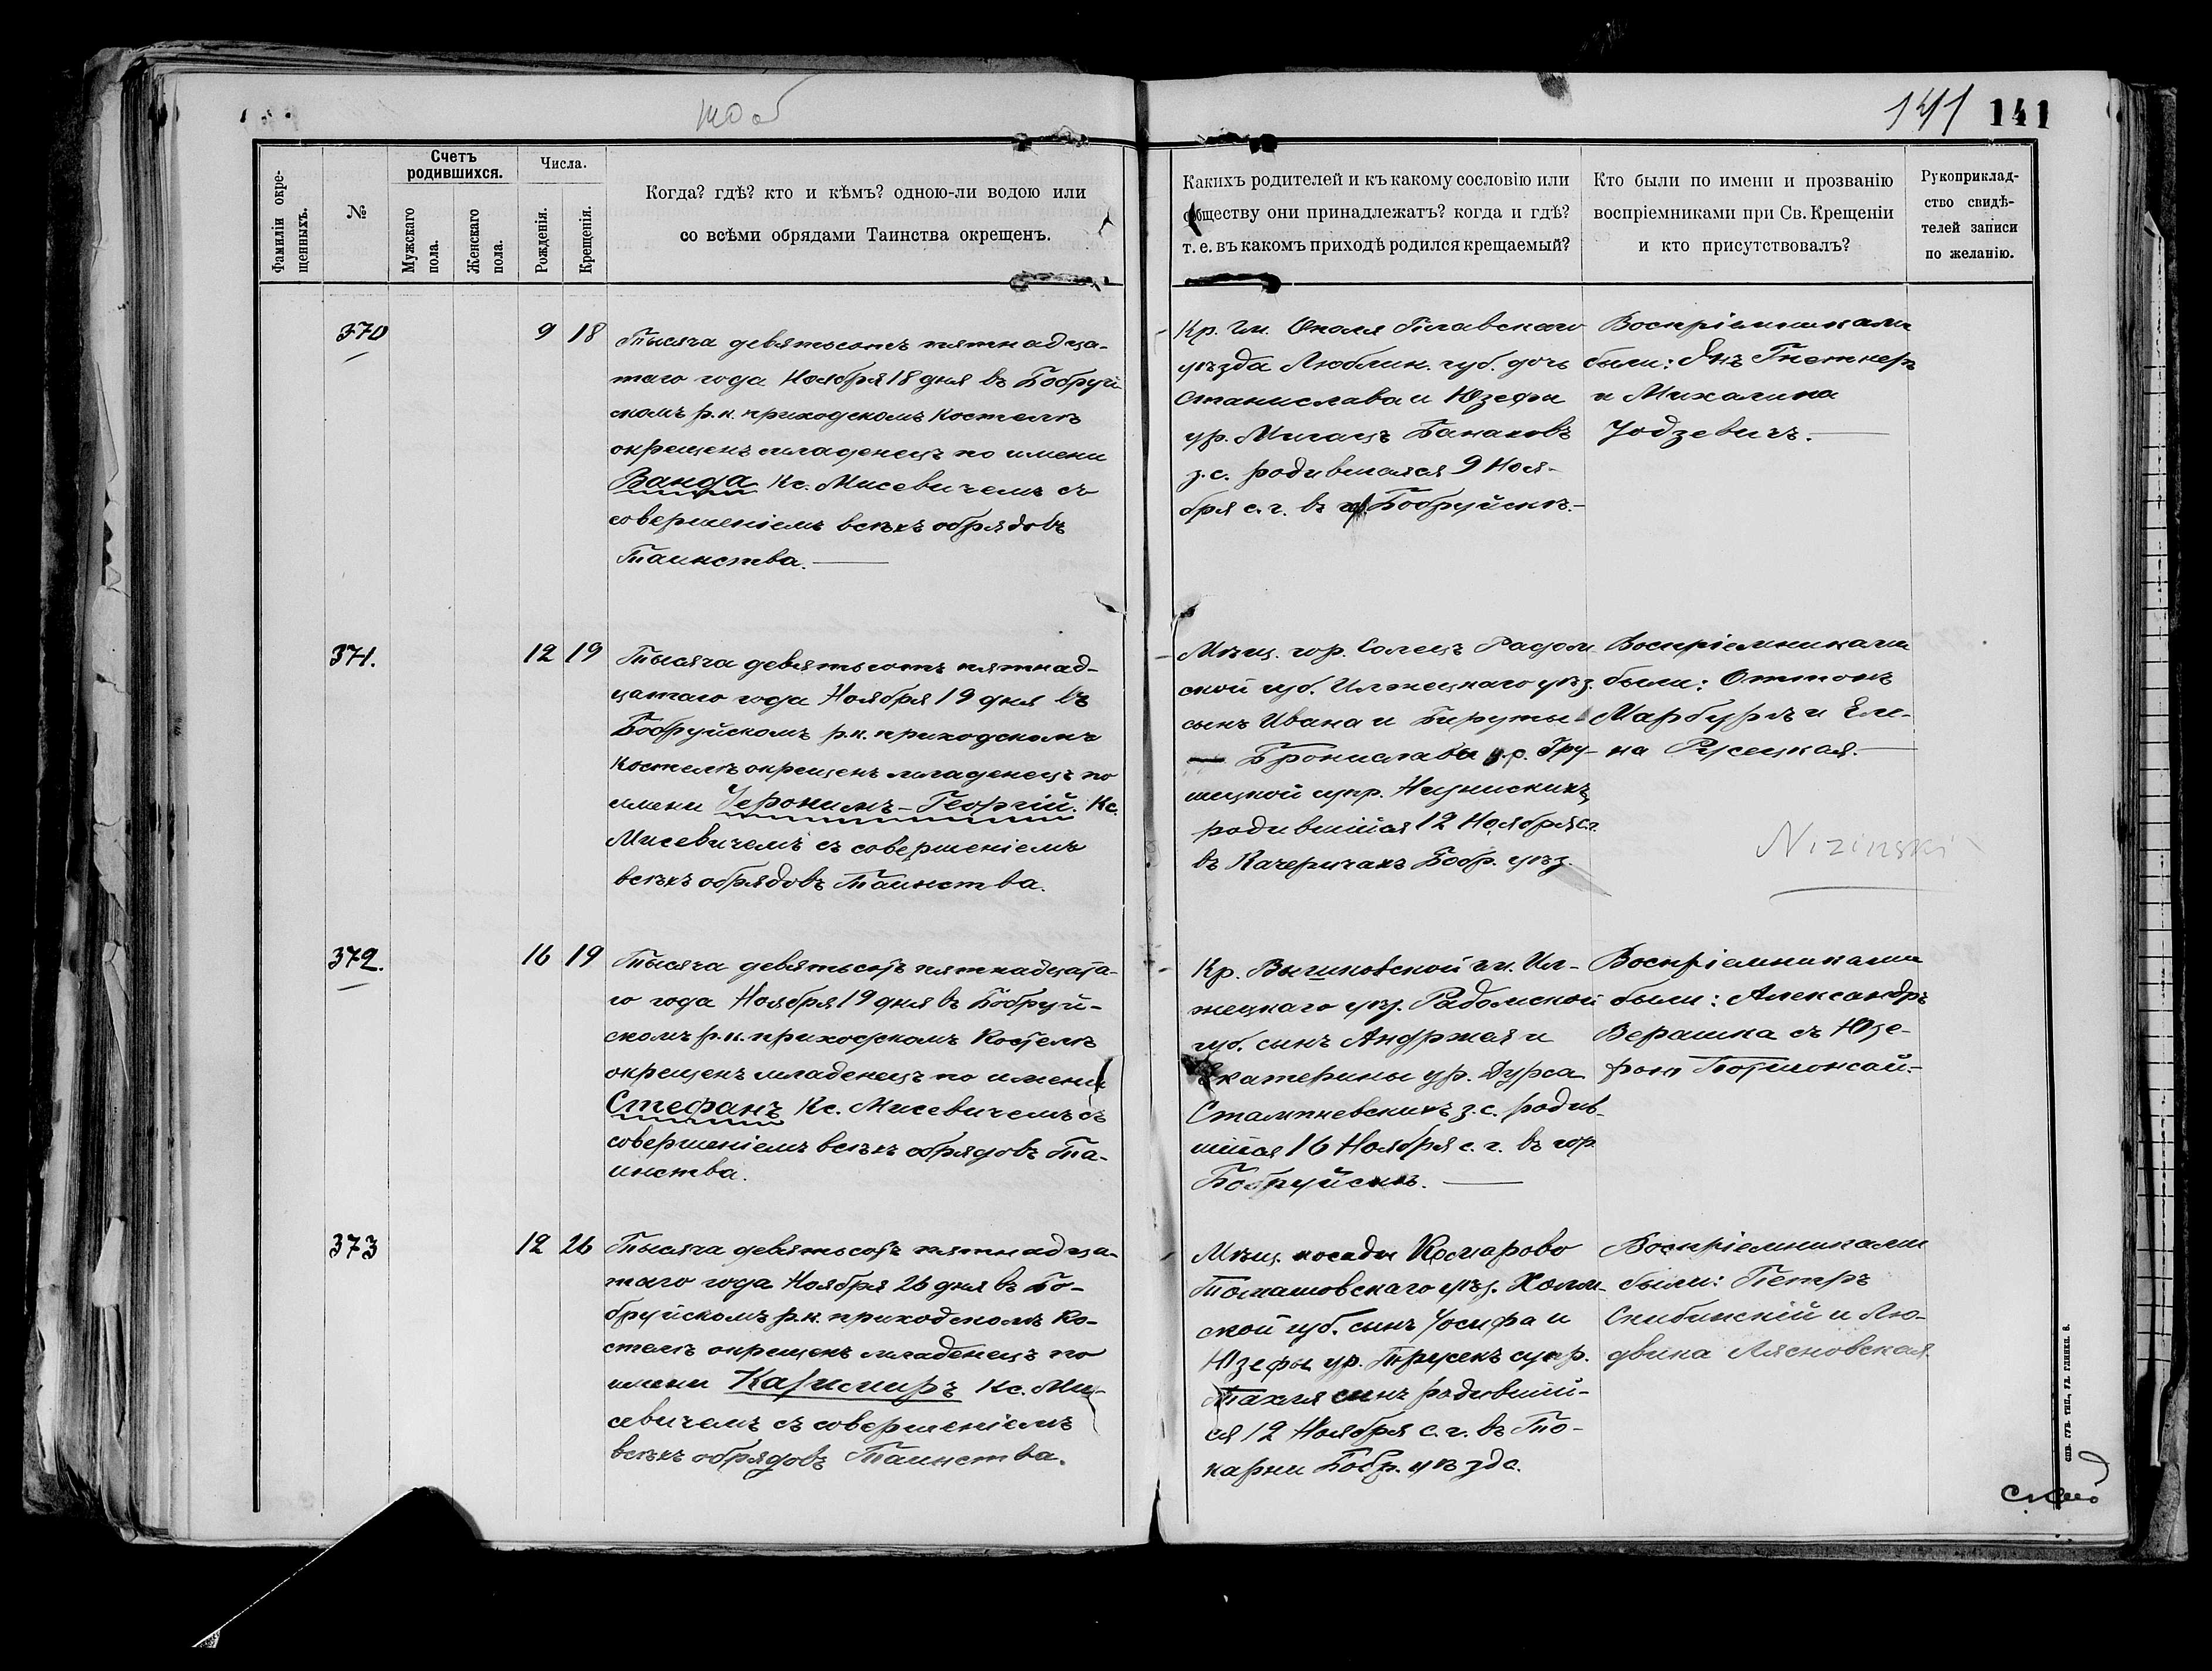 141 141
Фамиліи окре-
щенныхъ.
№
Счетъ
родившихся.
Мужскаго
пола.
Женскаго
пола.
Числа.
Рожденія.
Крещенія.
Когда? гдѣ? кто и кѣмъ? одною-ли водою или
со всѣми обрядами Таинства окрещенъ.
Какихъ родителей и къ какому сословію или
обществу они принадлежатъ? когда и гдѣ?
т. е. въ какомъ приходѣ родился крещаемый?
Кто были по имени и прозванію
воспріемниками при Св. Крещеніи
и кто присутствовалъ?
Рукоприклад-
ство свидѣ-
телей записи
по желанію.
370
9 18
Тысяча девятьсотъ пятнадца-
таго года Ноября 18 дня въ Бобруй
скомъ р.к. приходскомъ костелѣ
окрещенъ младенецъ по имени
Ванда Кс. Мисевичемъ съ
совершеніемъ всѣхъ обрядовъ
Таинства.
Кр. гм. Ополя
уѣзда Люблин. губ. дочь
Станислава и Юзефы
ур. Мигацъ Банаковъ
з.с. родившаяся 9 Ноя-
бря с. г. въ Бобруйскѣ.
Воспріемниками
были: Янъ
и Михалина
371.
12 19
Тысяча девятьсотъ пятнад-
цатаго года Ноября 19 дня въ
Бобруйскомъ р.к. приходскомъ
костелѣ окрещенъ младенецъ по
имени Іеронимъ-Георгій. Кс.
Мисевичемъ съ совершеніемъ
всѣхъ обрядовъ Таинства.
Мѣщ. гор. Солецъ Радом
ской губ. Илжецкаго уѣз.
сынъ Ивана и Бируты-
Брониславы ур. Гру-
шецкой супр.
родившійся 12 Ноября с.г.
въ Качеричахъ Бобр. уѣз.
Воспріемниками
были: Оттонъ
Марбургъ и Еле-
на Русецкая.
Nizinski
372.
16 19
Тысяча девятьсотъ пятнадцата-
го года Ноября 19 дня въ Бобруй-
скомъ р.к. приходскомъ костелѣ
окрещенъ младенецъ по имени
Стефанъ Кс. Мисевичемъ съ
совершеніемъ всѣхъ обрядовъ Та-
инства.
Кр. гм. Ил-
жецкаго уѣз. Радомской
губ. сынъ Андржея и
Екатерины ур. Дурса
Стампневскихъ з.с. родив-
шійся 16 Ноября с. г. въ гор
Бобруйскѣ.
Воспріемниками
были: Александръ
Верашка съ Юзе-
фою
373
12 26
Тысяча девятьсотъ пятнадца-
таго года Ноября 26 дня въ Бо-
бруйскомъ р.к. приходскомъ ко-
стелѣ окрещенъ младенецъ по
имени Казимиръ Кс. Ми-
севичемъ съ совершеніемъ
всѣхъ обрядовъ Таинства.
Мѣщ. посады Комарово
Томашовскаго уѣз. Холм-
ской губ. сынъ Іосифа и
Юзефы ур. Трусекъ супр.
сынъ родивший-
ся 12 Ноября с. г. въ То-
карни Бобр. уѣзда.
Воспріемниками
были: Петръ
Скибинскій и Лю-
двика Лясковская.
СПБ. ГУБ. ТИП., УЛ. ГЛИНКИ. 8.